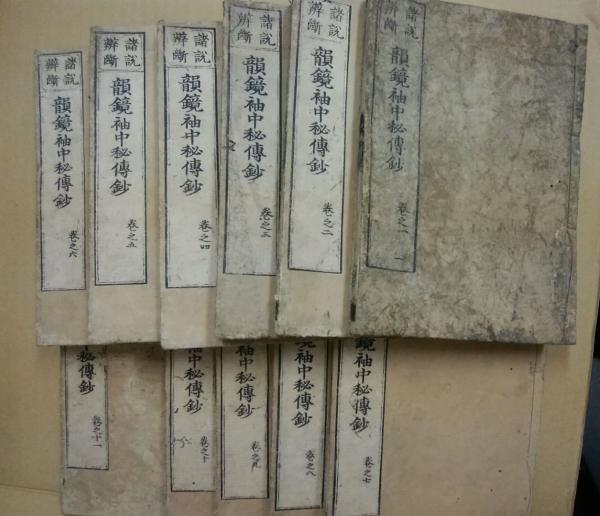 諸説
辧断
韻鏡袖中秘傳鈔
卷之一
一
諸説
辧断
韻鏡袖中秘傳鈔
卷之二
諸説
辧断
韻鏡袖中秘傳鈔
卷之三
諸説
辧断
韻鏡袖中秘傳鈔
卷之四
諸説
辧断
韻鏡袖中秘傳鈔
卷之五
諸説
辧断
韻鏡袖中秘傳鈔
卷之六
鏡袖中秘傳鈔
卷之七
袖中秘傳鈔
卷之八
中秘傳鈔
卷之九
袖中秘傳鈔
卷之十
秘傳鈔
卷之十一